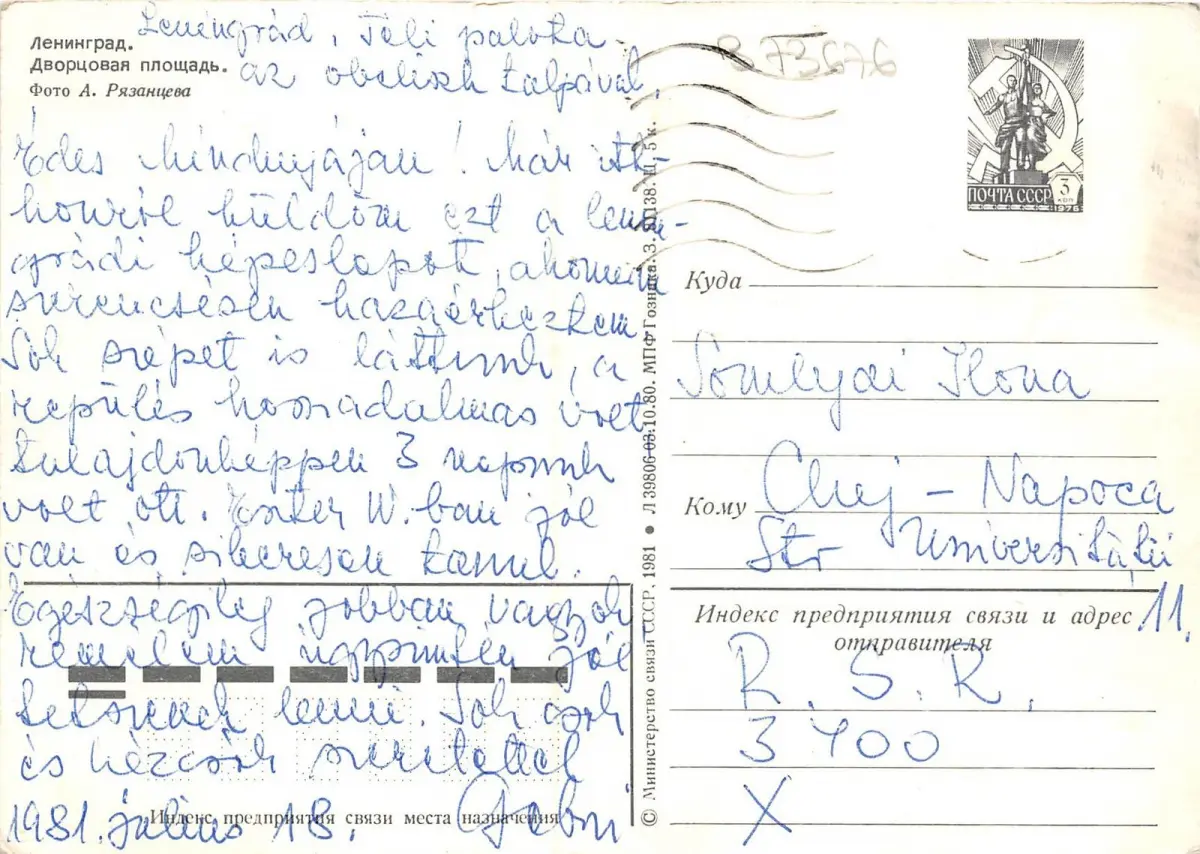 Ленинград.
Дворцовая площадь.
Фото А. Рязанцева
Leningrád, Téli palota
az obeliszk talpával.
B 73676
Édes Mindnyájan! Már itt-
honról küldöm ezt a lenin-
grádi képeslapot, ahonnan
szerencsésen hazaérkeztem
Sok szépet is láttunk, a
repülés csodálatos volt
tulajdonképpen 3 napunk
volt ott. Eszter W.ban jól
van és sikeresen tanul.
Egészségileg jobban vagyok
remélem úgyszintén jól
tetszenek lenni. Sok csók
és kézcsók szeretettel
1981. július 18. Gabri
Индекс предприятия связи места назначения
© Министерство связи СССР. 1981 • Л 39806 03.10.80. МПФ Гознака. З. 81138. Ц. 5 к.
ПОЧТА СССР
3
коп
1976
Куда
Somlyai Ilona
Кому
Cluj - Napoca
Str Universității
11.
Индекс предприятия связи и адрес
отправителя
R. S. R.
3400
X